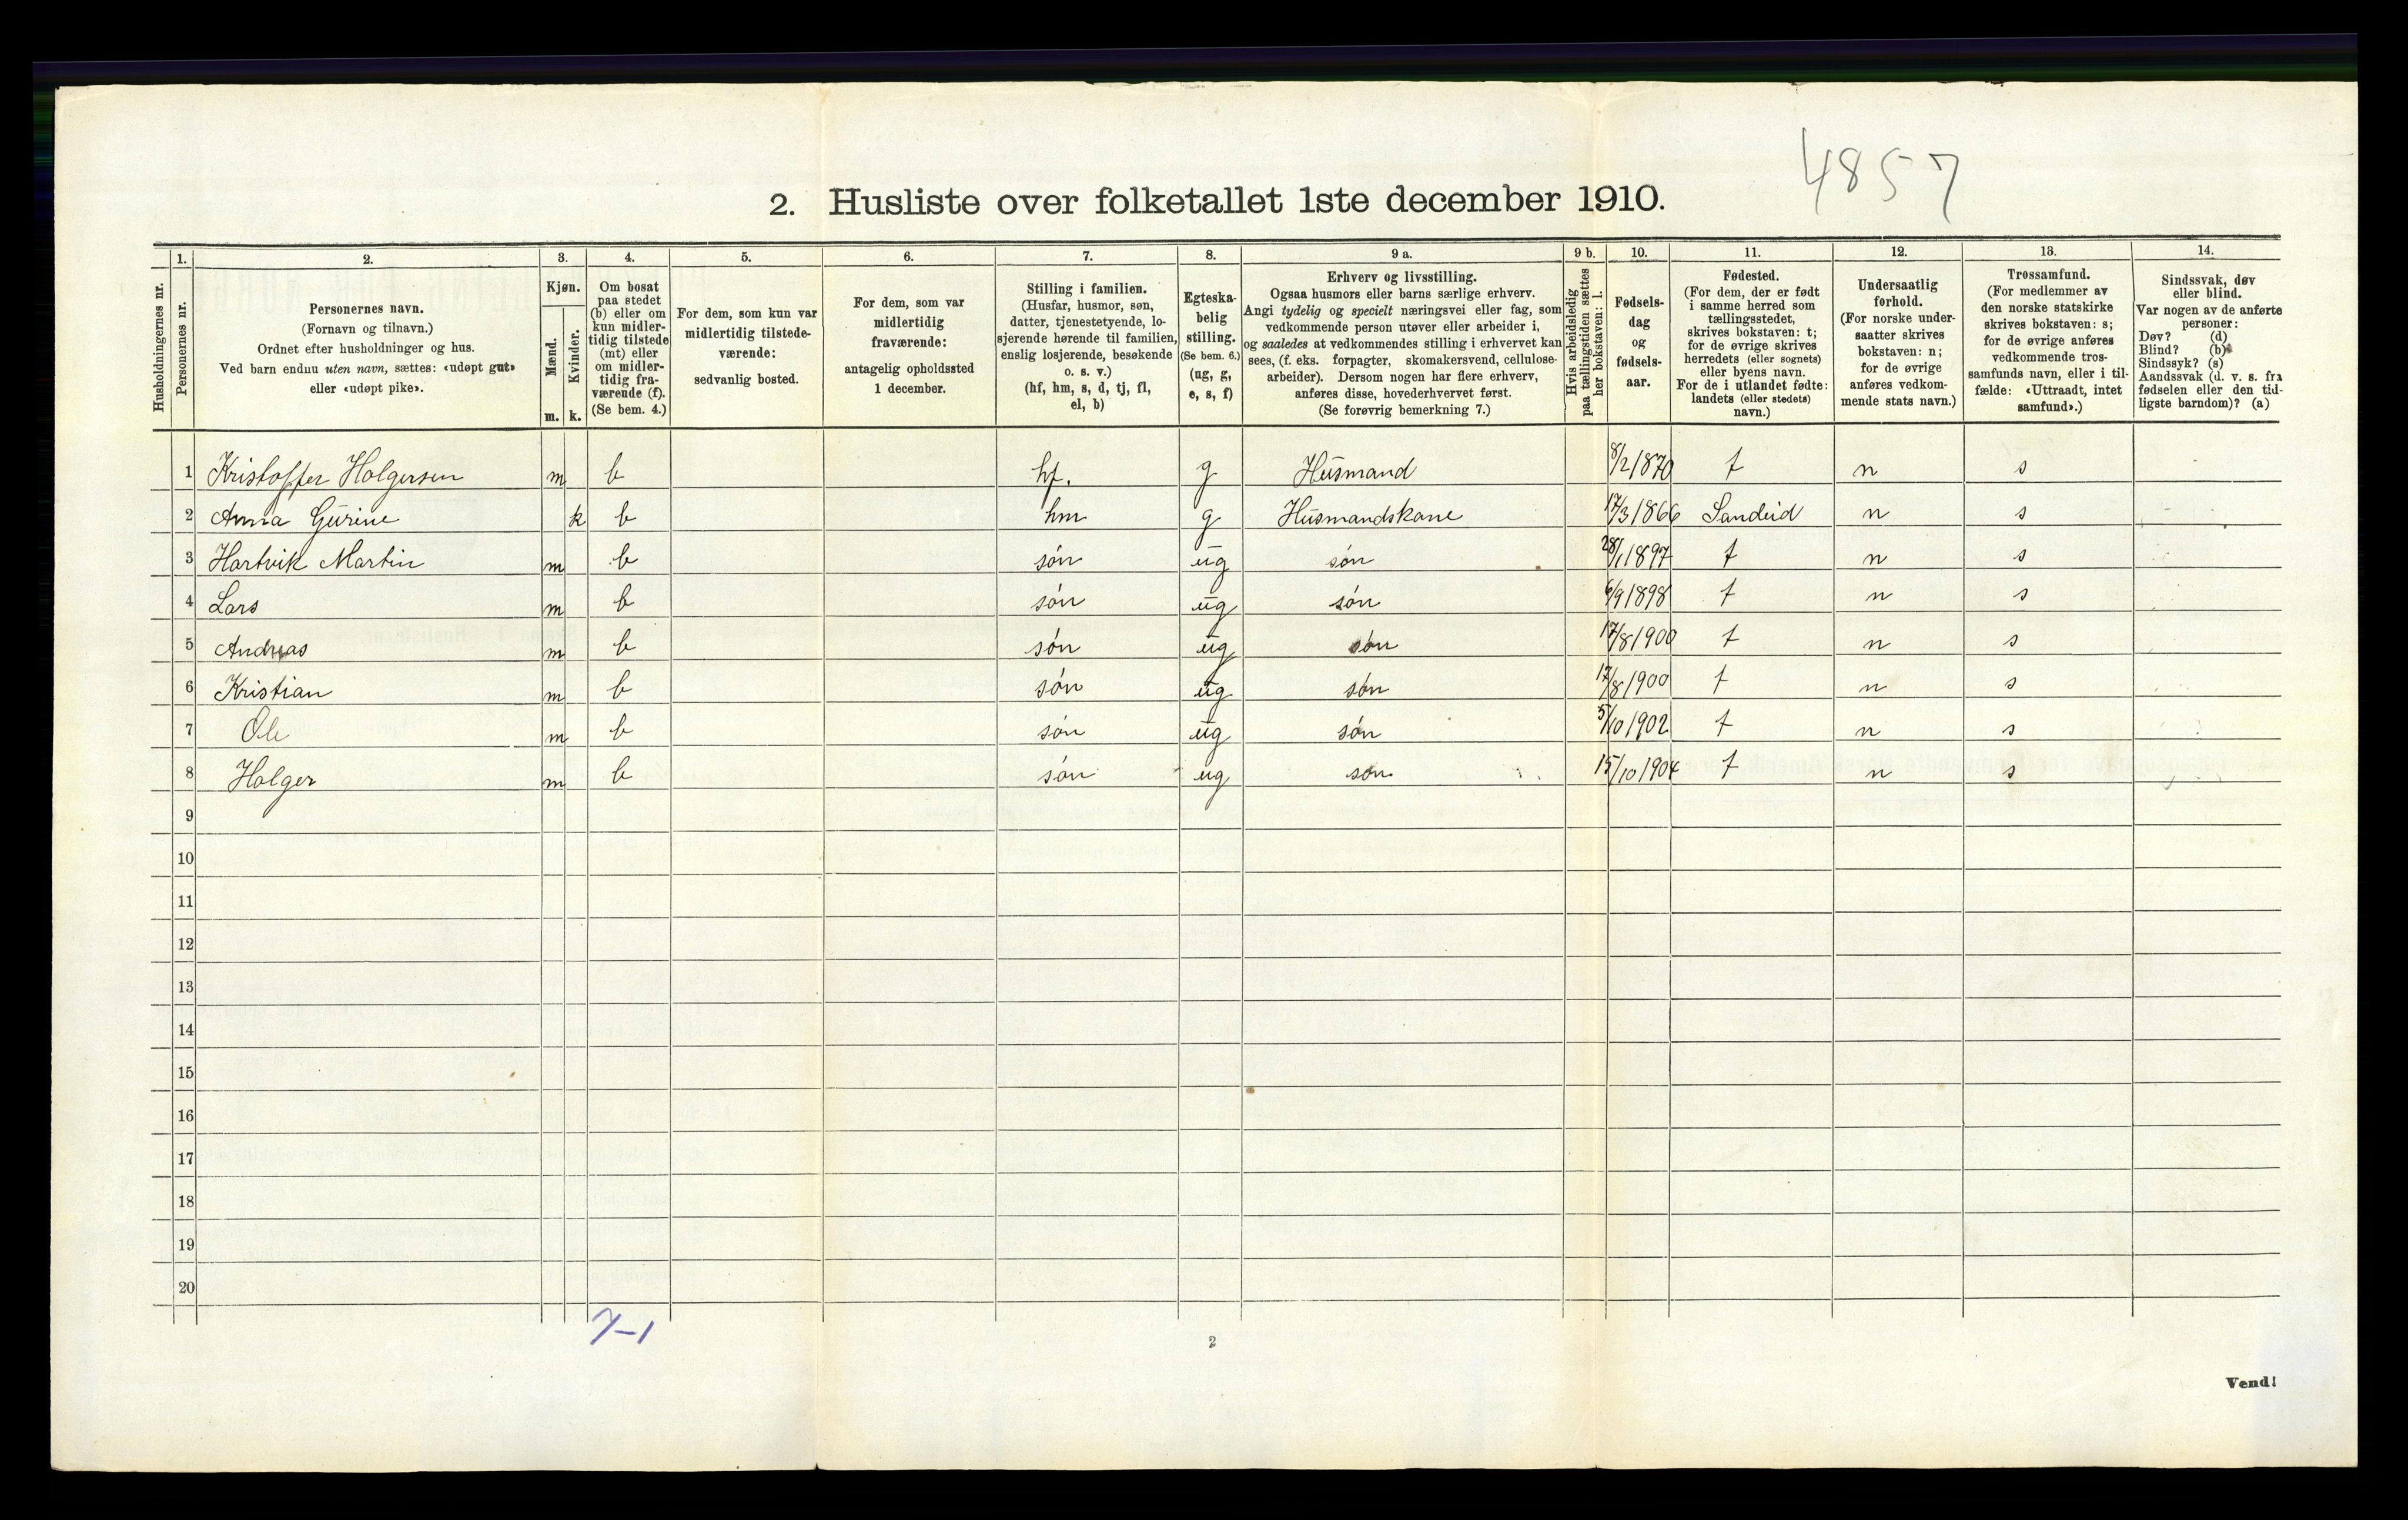 4857
2. Husliste over folketallet 1ste december 1910.
1. 2. 3. 4. 5. 6. 7. 8. 9 a. 9 b. 10. 11. 12. 13. 14.
Husholdningernes nr.
Personernes nr.
Personernes navn.
(Fornavn og tilnavn.)
Ordnet efter husholdninger og hus.
Ved barn endnu uten navn, sættes: «udøpt gut»
eller «udøpt pike».
Kjøn.
Mænd.
m.
Kvinder.
k.
Om bosat
paa stedet
(b) eller om
kun midler-
tidig tilstede
(mt) eller
om midler-
tidig fra-
værende (f).
(Se bem. 4.)
For dem, som kun var
midlertidig tilstede-
værende:
sedvanlig bosted.
For dem, som var
midlertidig
fraværende:
antagelig opholdssted
1 december.
Stilling i familien.
(Husfar, husmor, søn,
datter, tjenestetyende, lo-
sjerende hørende til familien,
enslig losjerende, besøkende
o. s. v.)
(hf, hm, s, d, tj, fl,
el, b)
Egteska-
belig
stilling.
(Se bem. 6.)
(ug, g,
e, s, f)
Erhverv og livsstilling.
Ogsaa husmors eller barns særlige erhverv.
Angi tydelig og specielt næringsvei eller fag, som
vedkommende person utøver eller arbeider i,
og saaledes at vedkommendes stilling i erhvervet kan
sees, (f. eks. forpagter, skomakersvend, cellulose-
arbeider). Dersom nogen har flere erhverv,
anføres disse, hovederhvervet først.
(Se forøvrig bemerkning 7.)
Hvis arbeidsledig
paa tællingstiden sættes
her bokstaven: l.
Fødsels-
dag
og
fødsels-
aar.
Fødested.
(For dem, der er født
i samme herred som
tællingsstedet,
skrives bokstaven: t;
for de øvrige skrives
herredets (eller sognets)
eller byens navn.
For de i utlandet fødte:
landets (eller stedets)
navn.)
Undersaatlig
forhold.
(For norske under-
saatter skrives
bokstaven: n;
for de øvrige
anføres vedkom-
mende stats navn.)
Trossamfund.
(For medlemmer av
den norske statskirke
skrives bokstaven: s;
for de øvrige anføres
vedkommende tros-
samfunds navn, eller i til-
fælde: «Uttraadt, intet
samfund».)
Sindssvak, døv
eller blind.
Var nogen av de anførte
personer:
Døv? (d)
Blind? (b)
Sindssyk? (s)
Aandssvak (d. v. s. fra
fødselen eller den tid-
ligste barndom)? (a)
1 Kristoffer Holgersen m b hf. g Husmand 8/2 1870 t n s
2 Anna Gurine k b hm g Husmandskone 17/3 1866 Sandeid n s
3 Hartvik Martin m b søn ug søn 28/1 1897 t n s
4 Lars m b søn ug søn 6/9 1898 t n s
5 Andreas m b søn ug søn 17/8 1900 t n s
6 Kristian m b søn ug søn 17/8 1900 t n s
7 Ole m b søn ug søn 5/10 1902 t n s
8 Holger m b søn ug søn 15/10 1904 t n s
9
10
11
12
13
14
15
16
17
18
19
20
7-1
2
Vend!